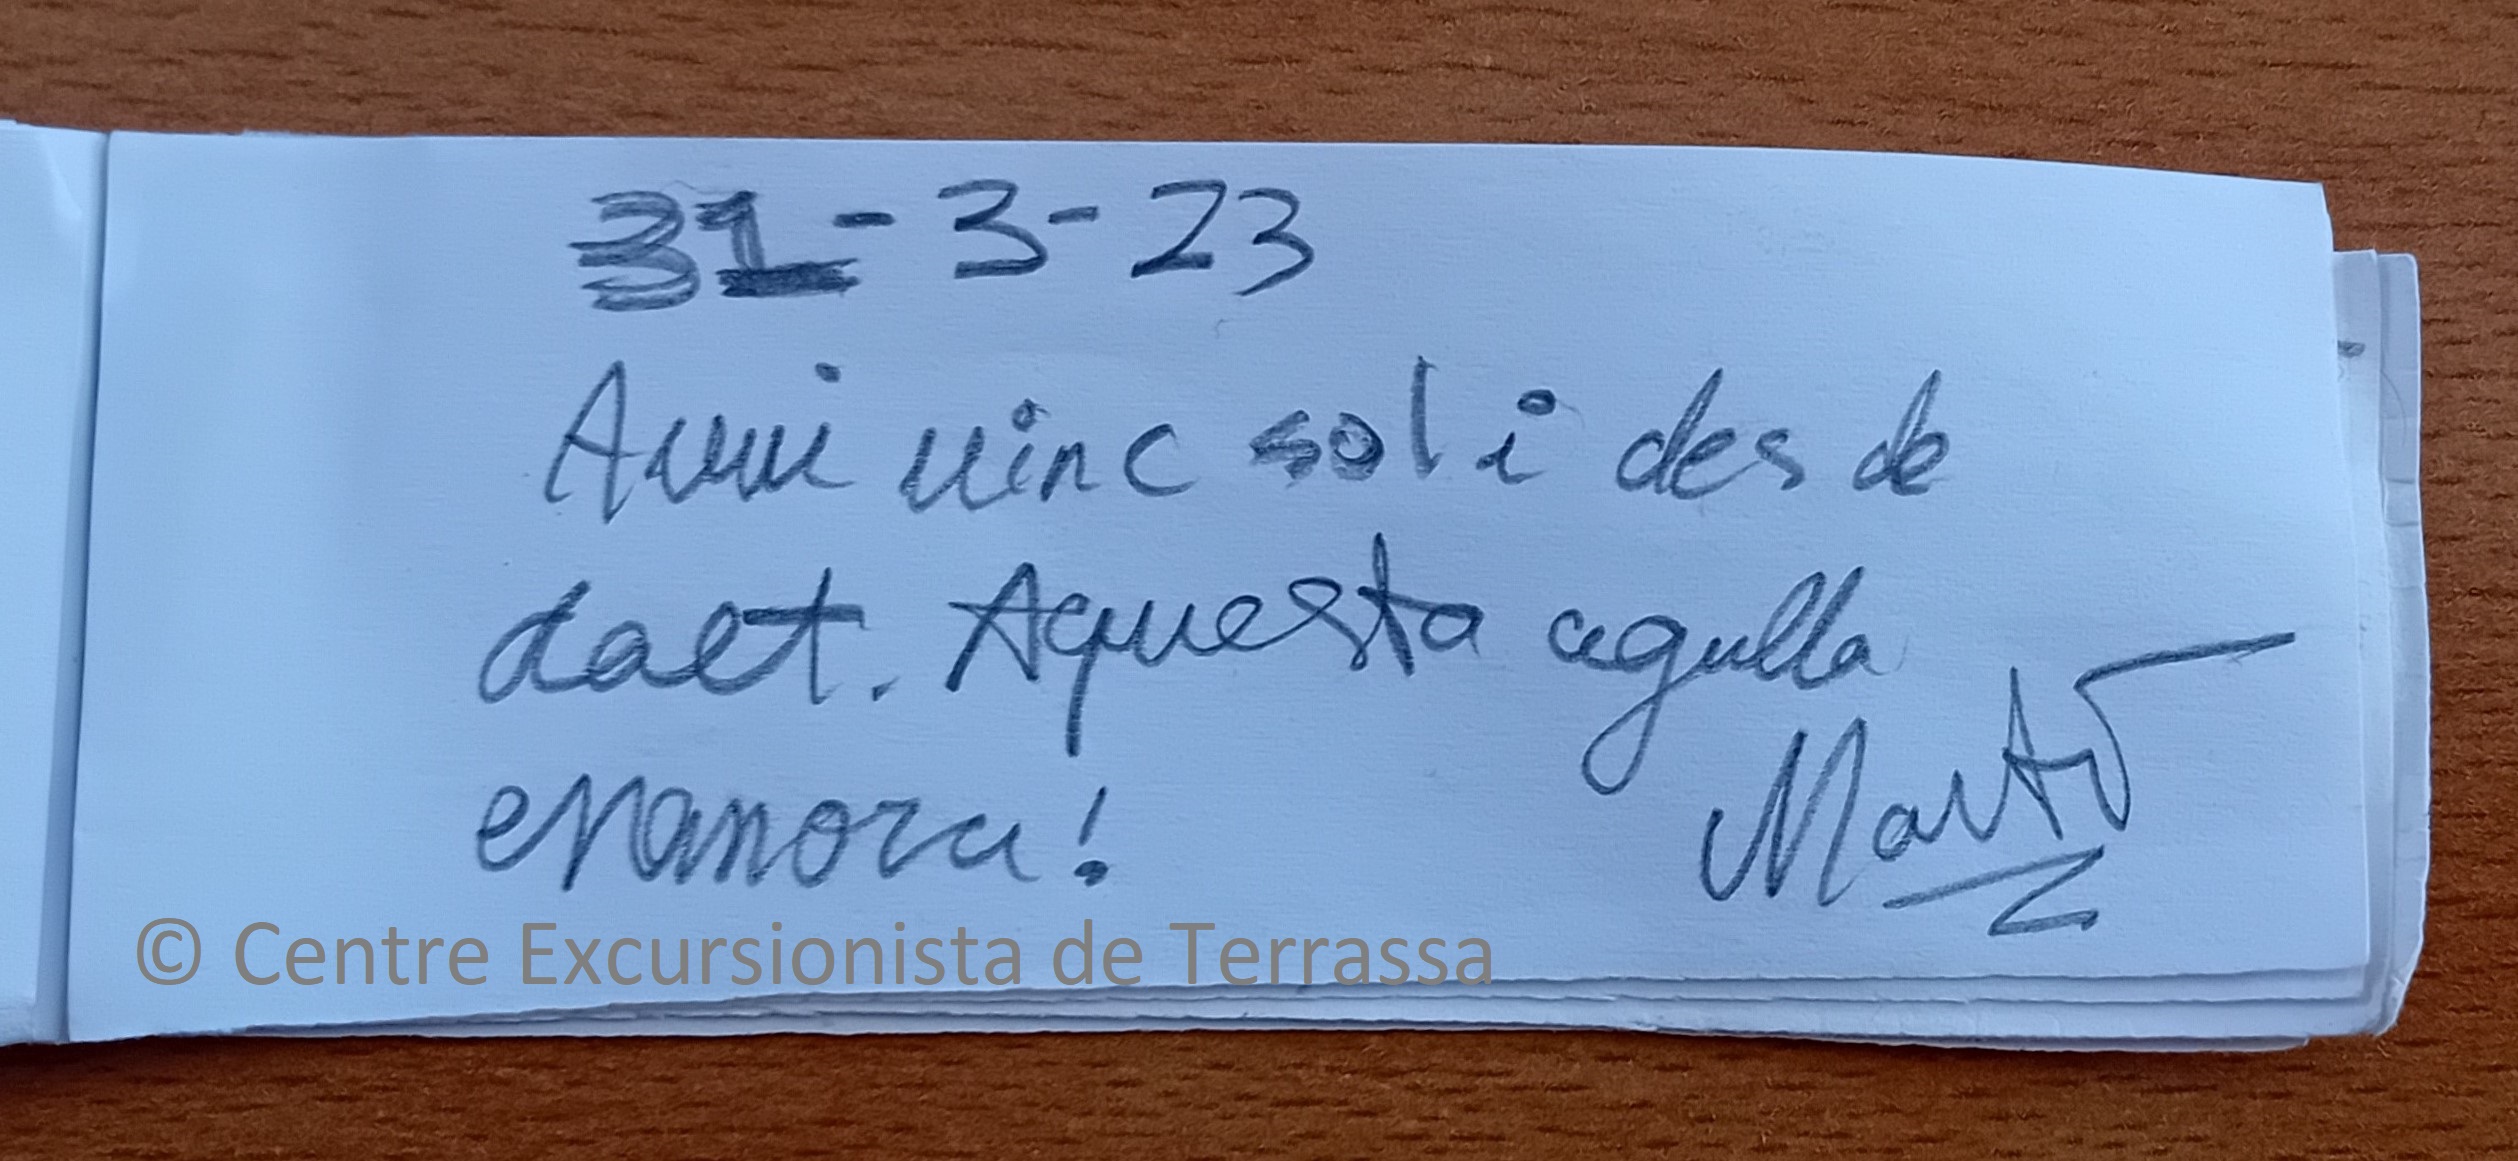 31-3-23
Avui vinc sol i des de
dalt. Aquesta agulla
enamora!
Martí
© Centre Excursionista de Terrassa